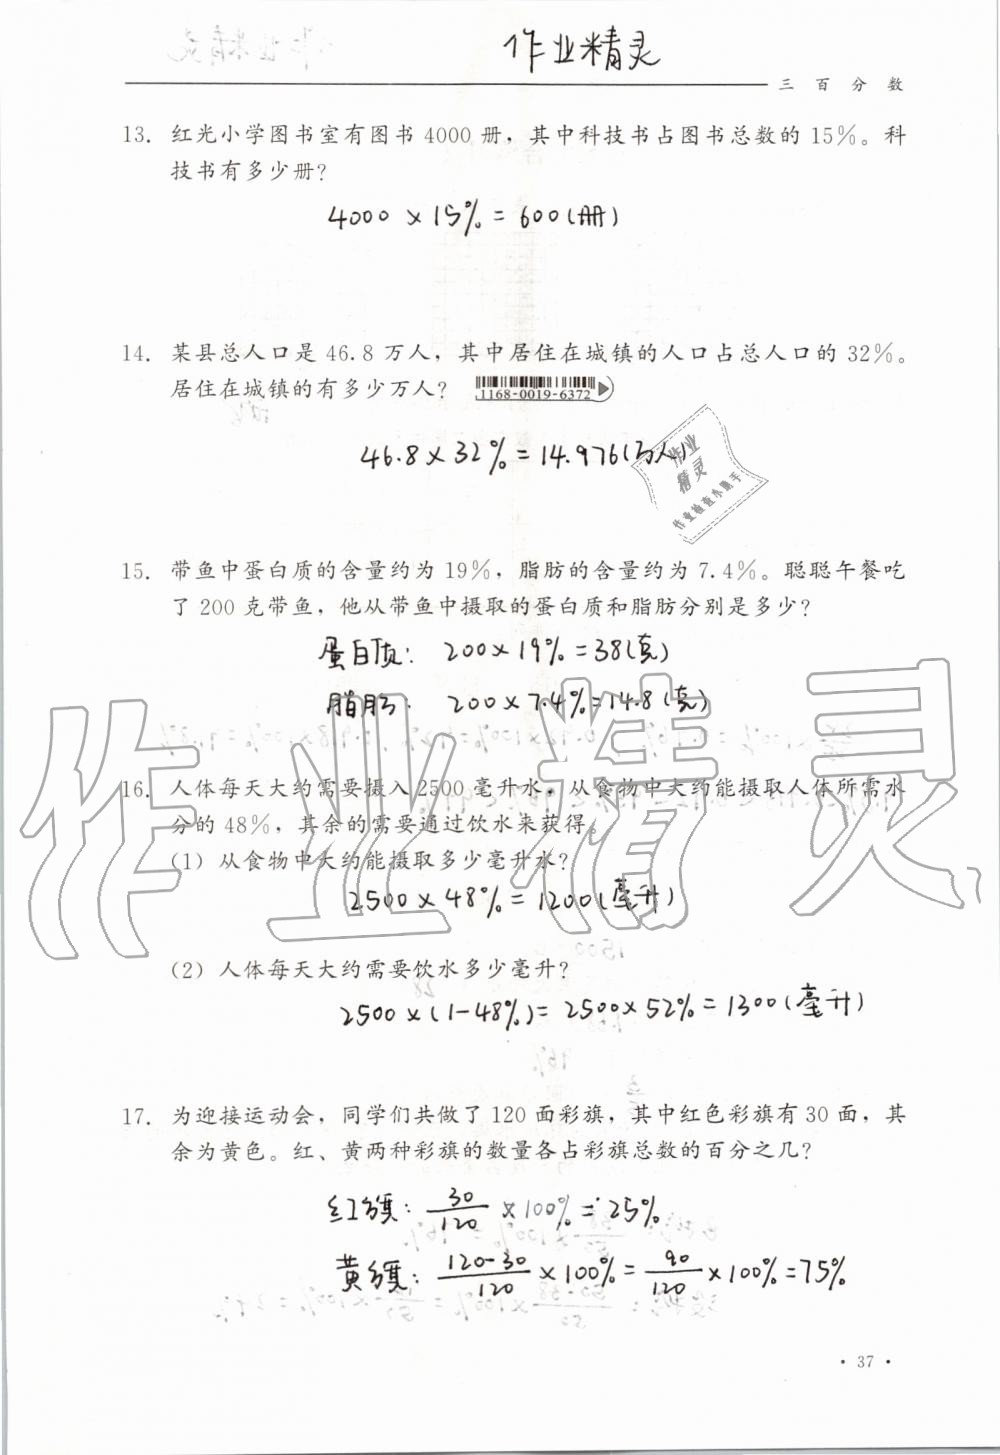 作业精灵
三 百 分 数
13. 红光小学图书室有图书 4000 册，其中科技书占图书总数的 15%。科
技书有多少册?
4000 × 15% = 600(册)
14. 某县总人口是 46.8 万人，其中居住在城镇的人口占总人口的 32%。
居住在城镇的有多少万人?
1168-0019-6372
46.8 × 32% = 14.976(万人)
作业
精灵
作业检查小助手
15. 带鱼中蛋白质的含量约为 19%，脂肪的含量约为 7.4%。聪聪午餐吃
了 200 克带鱼，他从带鱼中摄取的蛋白质和脂肪分别是多少?
蛋白质: 200 × 19% = 38(克)
脂肪: 200 × 7.4% = 14.8(克)
作业精灵
16. 人体每天大约需要摄入 2500 毫升水，从食物中大约能摄取人体所需水
分的 48%，其余的需要通过饮水来获得。
(1) 从食物中大约能摄取多少毫升水?
2500 × 48% = 1200(毫升)
(2) 人体每天大约需要饮水多少毫升?
2500 × (1-48%) = 2500 × 52% = 1300(毫升)
17. 为迎接运动会，同学们共做了 120 面彩旗，其中红色彩旗有 30 面，其
余为黄色。红、黄两种彩旗的数量各占彩旗总数的百分之几?
红旗: 30/120 × 100% = 25%
黄旗: 120-30/120 × 100% = 90/120 × 100% = 75%
· 37 ·